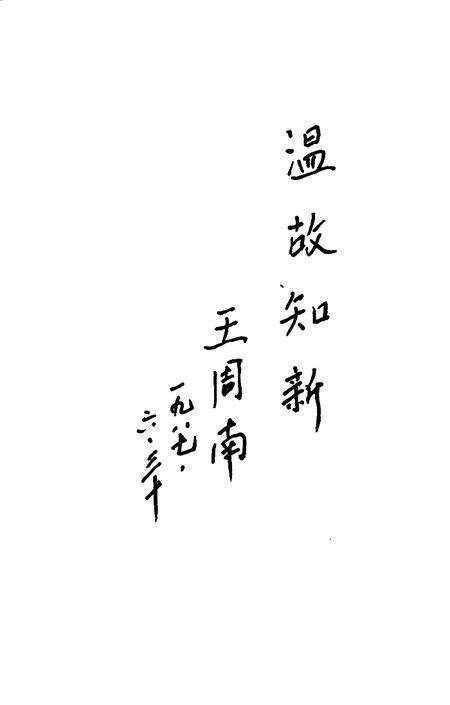 温故知新
王周南
一九八七、
六、三十